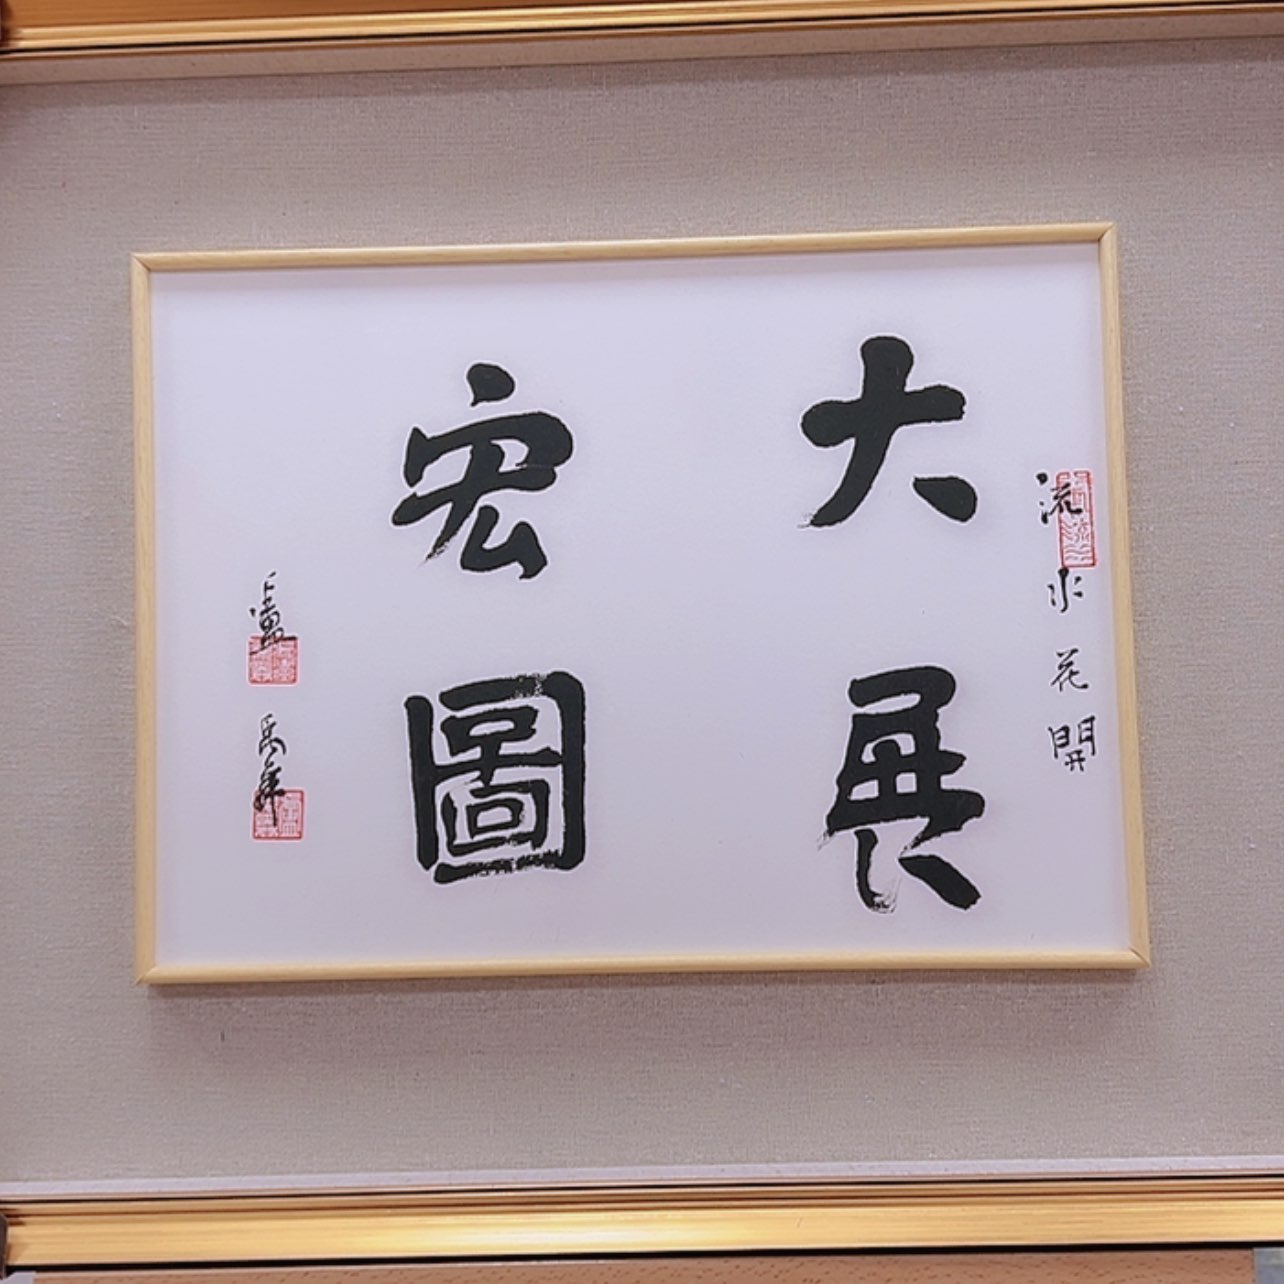 流水花開
大展
宏圖